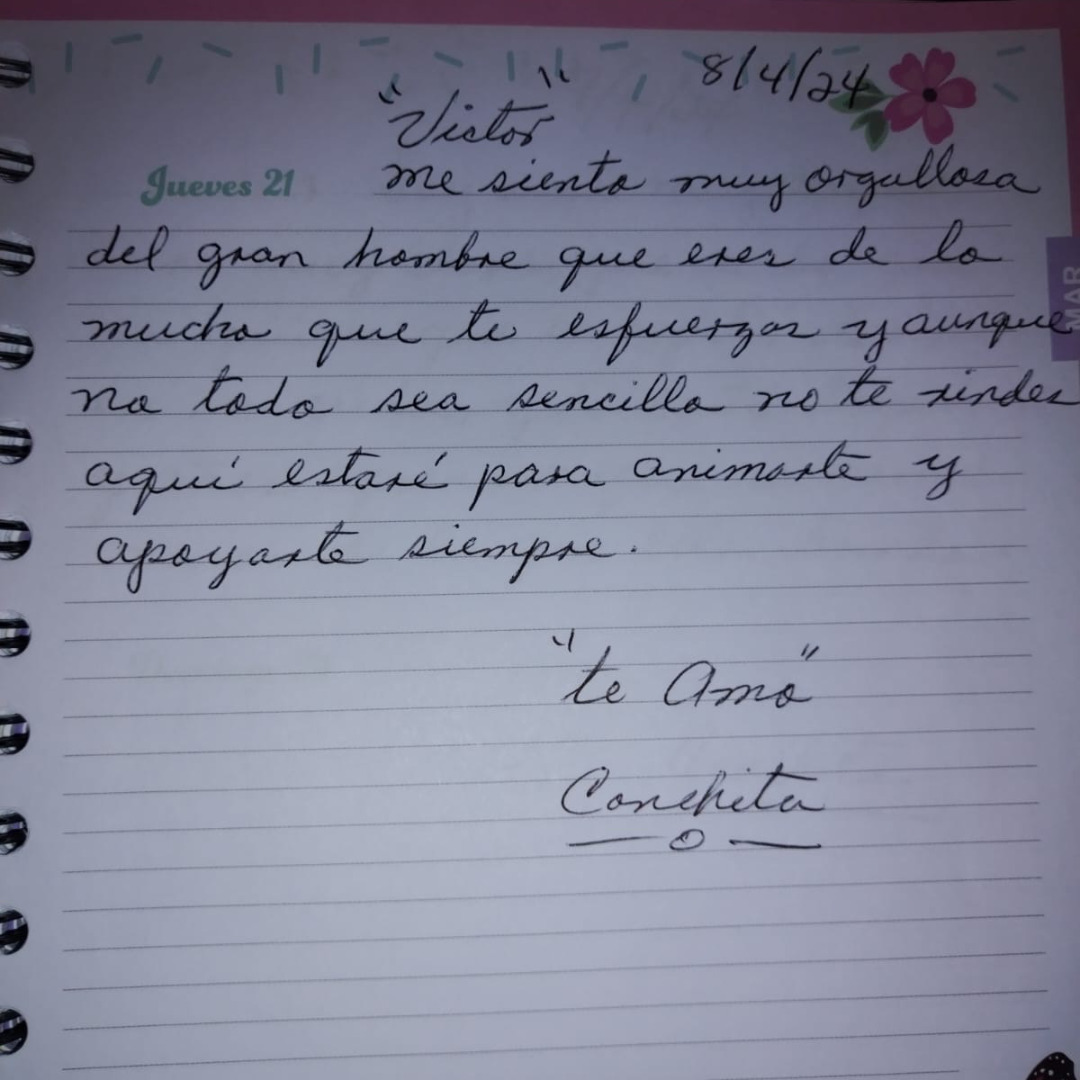 8/4/24
"Victor"
Jueves 21 me siento muy orgullosa
del gran hombre que eres de lo
mucho que te esfuerzas y aunque
no todo sea sencillo no te rindes
aquí estaré para animarte y
apoyarte siempre.
"te Amo"
Conchita
MAR